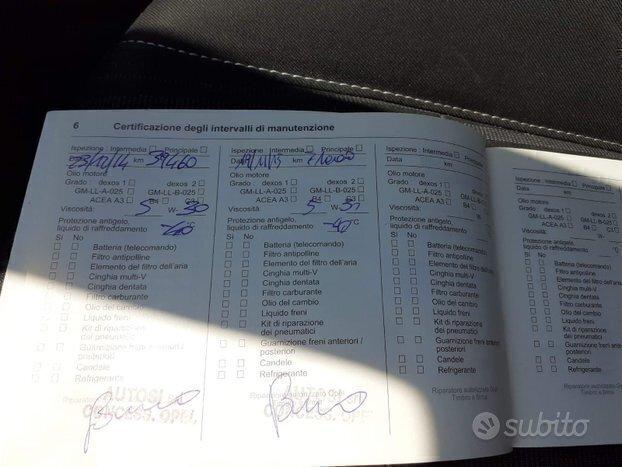 6 Certificazione degli intervalli di manutenzione
Ispezione : Intermedia Principale
Data 23/12/14 km 39460
Olio motore
Grado : dexos 1 dexos 2
GM-LL-A-025 GM-LL-B-025
ACEA A3 B4 C3
Viscosità: 5 W- 30
Protezione antigelo,
liquido di raffreddamento °C
Sì No
Batteria (telecomando)
Filtro antipolline
Elemento del filtro dell'aria
Cinghia multi-V
Cinghia dentata
Filtro carburante
Olio del cambio
Liquido freni
Kit di riparazione
dei pneumatici
Guarnizione freni anteriori /
posteriori
Candele
Refrigerante
Riparatore autorizzato Opel
CONCESS. OPEL
Ispezione : Intermedia Principale
Data km
Olio motore
Grado : dexos 1 dexos 2
GM-LL-A-025 GM-LL-B-025
ACEA A3 B4 C3
Viscosità: 5 W-
Protezione antigelo,
liquido di raffreddamento °C
Sì No
Batteria (telecomando)
Filtro antipolline
Elemento del filtro dell'aria
Cinghia multi-V
Cinghia dentata
Filtro carburante
Olio del cambio
Liquido freni
Kit di riparazione
dei pneumatici
Guarnizione freni anteriori /
posteriori
Candele
Refrigerante
Riparatore autorizzato Opel
CONCESS. OPEL
Ispezione : Intermedia Principale
Data km
Olio motore
Grado : dexos 1 dexos 2
GM-LL-A-025 GM-LL-B-025
ACEA A3 B4 C3
Viscosità: W-
Protezione antigelo,
liquido di raffreddamento °C
Sì No
Batteria (telecomando)
Filtro antipolline
Elemento del filtro dell'aria
Cinghia multi-V
Cinghia dentata
Filtro carburante
Olio del cambio
Liquido freni
Kit di riparazione
dei pneumatici
Guarnizione freni anteriori /
posteriori
Candele
Refrigerante
Riparatore autorizzato Opel
Timbro e firma
Ispezione : Intermedia Principale
Data km
Olio motore
Grado : dexos 1 dexos 2
GM-LL-A-025 GM-LL-B-025
ACEA A3 B4 C3
Viscosità: W-
Protezione antigelo,
liquido di raffreddamento
Sì No
Batteria (telecomando)
Filtro antipolline
Elemento del filtro dell'aria
Cinghia multi-V
Cinghia dentata
Filtro carburante
Olio del cambio
Liquido freni
Kit di riparazione
dei pneumatici
Guarnizione freni anteriori /
posteriori
Candele
Refrigerante
Riparatore autorizzato
Timbro e firma
subito